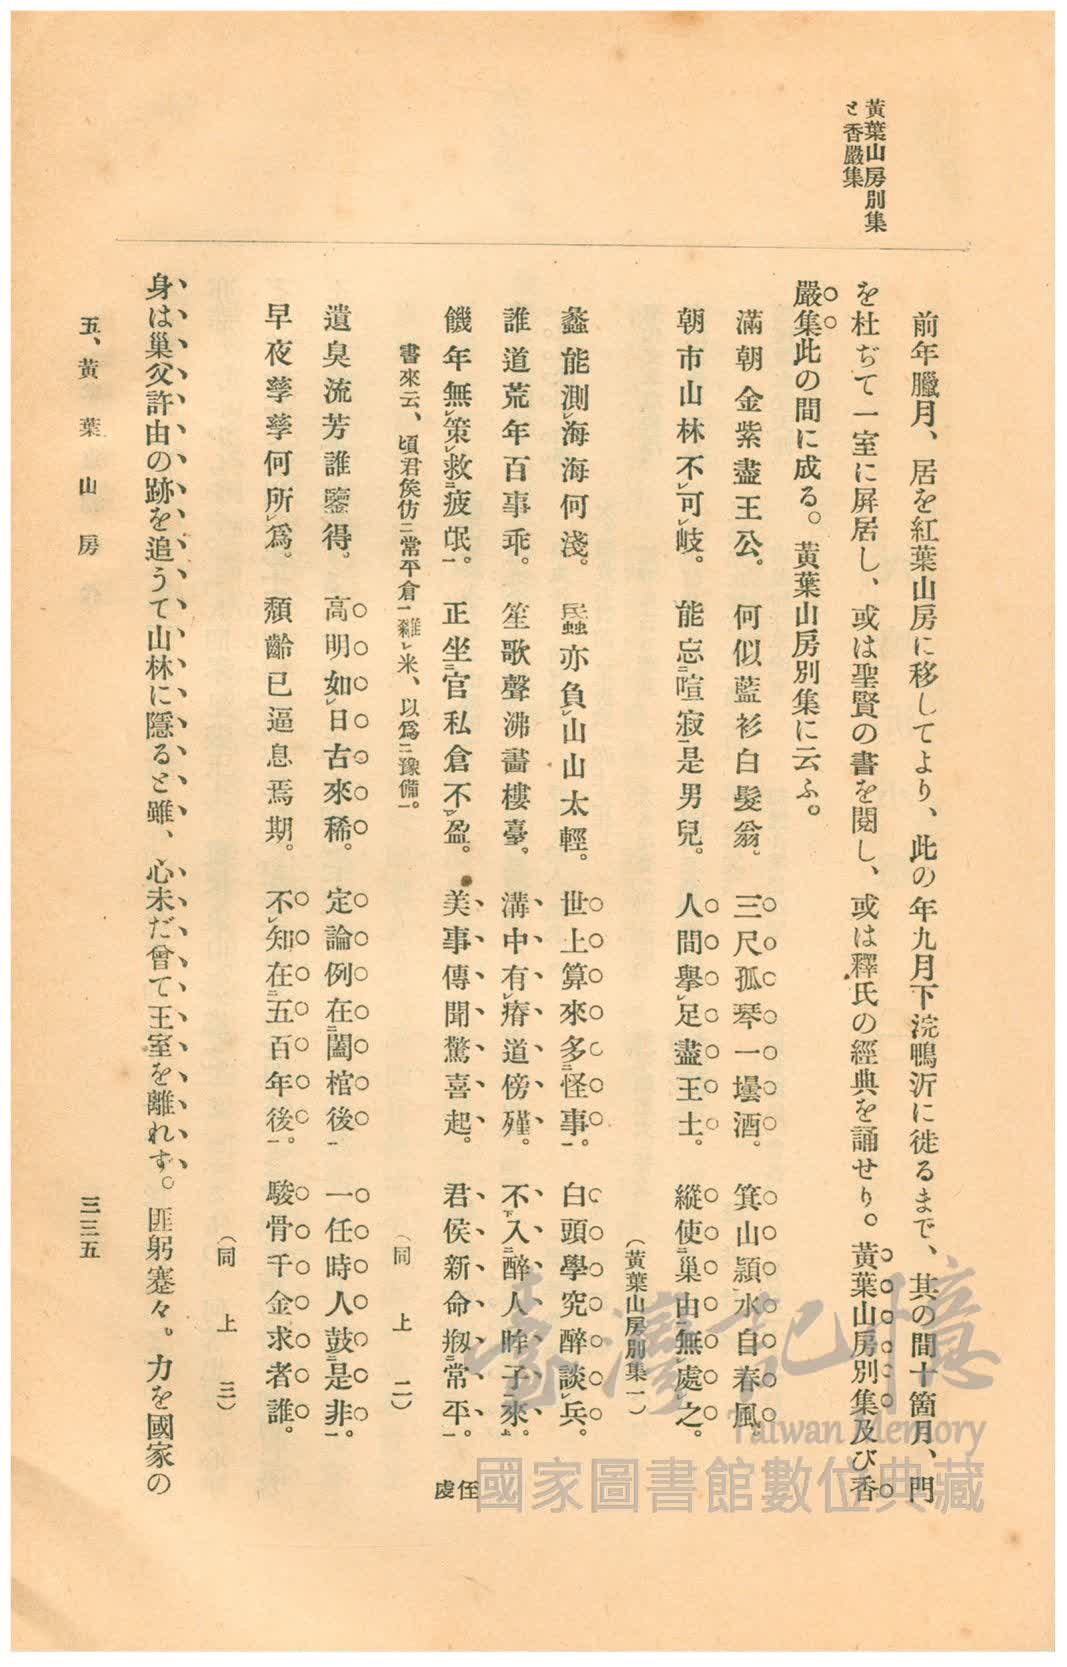 黃葉山房別集
と香嚴集
前年臘月、居を紅葉山房に移してより、此の年九月下浣鴨沂に徙るまで、其の間十箇月、門
を杜ぢて一室に屏居し、或は聖賢の書を閱し、或は釋氏の經典を誦せり。黃葉山房別集及び香
嚴集此の間に成る。黃葉山房別集に云ふ。
滿朝金紫盡王公。何似藍衫白髮翁。三尺孤琴一壜酒。箕山潁水自春風。
朝市山林不レ可レ岐。能忘二喧寂一是男兒。人間擧レ足盡王土。縱使二巢由一無レ處レ之。
(黃葉山房別集一)
蠡能測レ海海何淺。蟁亦負レ山山太輕。世上算來多二怪事一。白頭學究醉談レ兵。
誰道荒年百事乖。笙歌聲沸畵樓臺。溝中有レ瘠道傍殣。不下入二醉人眸子一來上。
饑年無レ策レ救二疲氓一。正坐三官私倉不レ盈。美事傳聞驚喜起。君侯新命剏二常平一。
侄
虔
書來云、頃君侯仿二常平倉一糴レ米、以爲二豫備一。
(同上二)
遺臭流芳誰鑒得。高明如レ日古來稀。定論例在二闔棺後一一任時人鼓二是非一。
早夜孳孳何所レ爲。頽齡已逼息焉期。不レ知在二五百年後一。駿骨千金求者誰。
(同上三)
身は巢父許由の跡を追うて山林に隱ると雖、心未だ曾て王室を離れず。匪躬蹇々。力を國家の
五、黃葉山房
三三五
臺灣記憶
Taiwan Memory
國家圖書館數位典藏